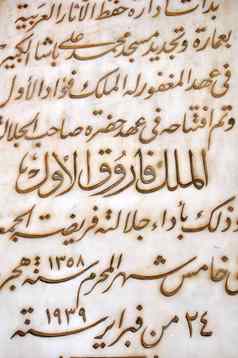 بدأت إدارة حفظ الآثار العربية
بعمارة وتجديد مسجد محمد على باشا الكبير
فى عهد المغفور له الملك فؤاد الأول
وتم افتتاحه فى عهد حضرة صاحب الجلالة
الملك فاروق الأول
وذلك بأداء جلالته فريضة الجمعة
فى خامس شهر المحرم سنة ١٣٥٨ هجر
٢٤ من فبراير سنة ١٩٣٩